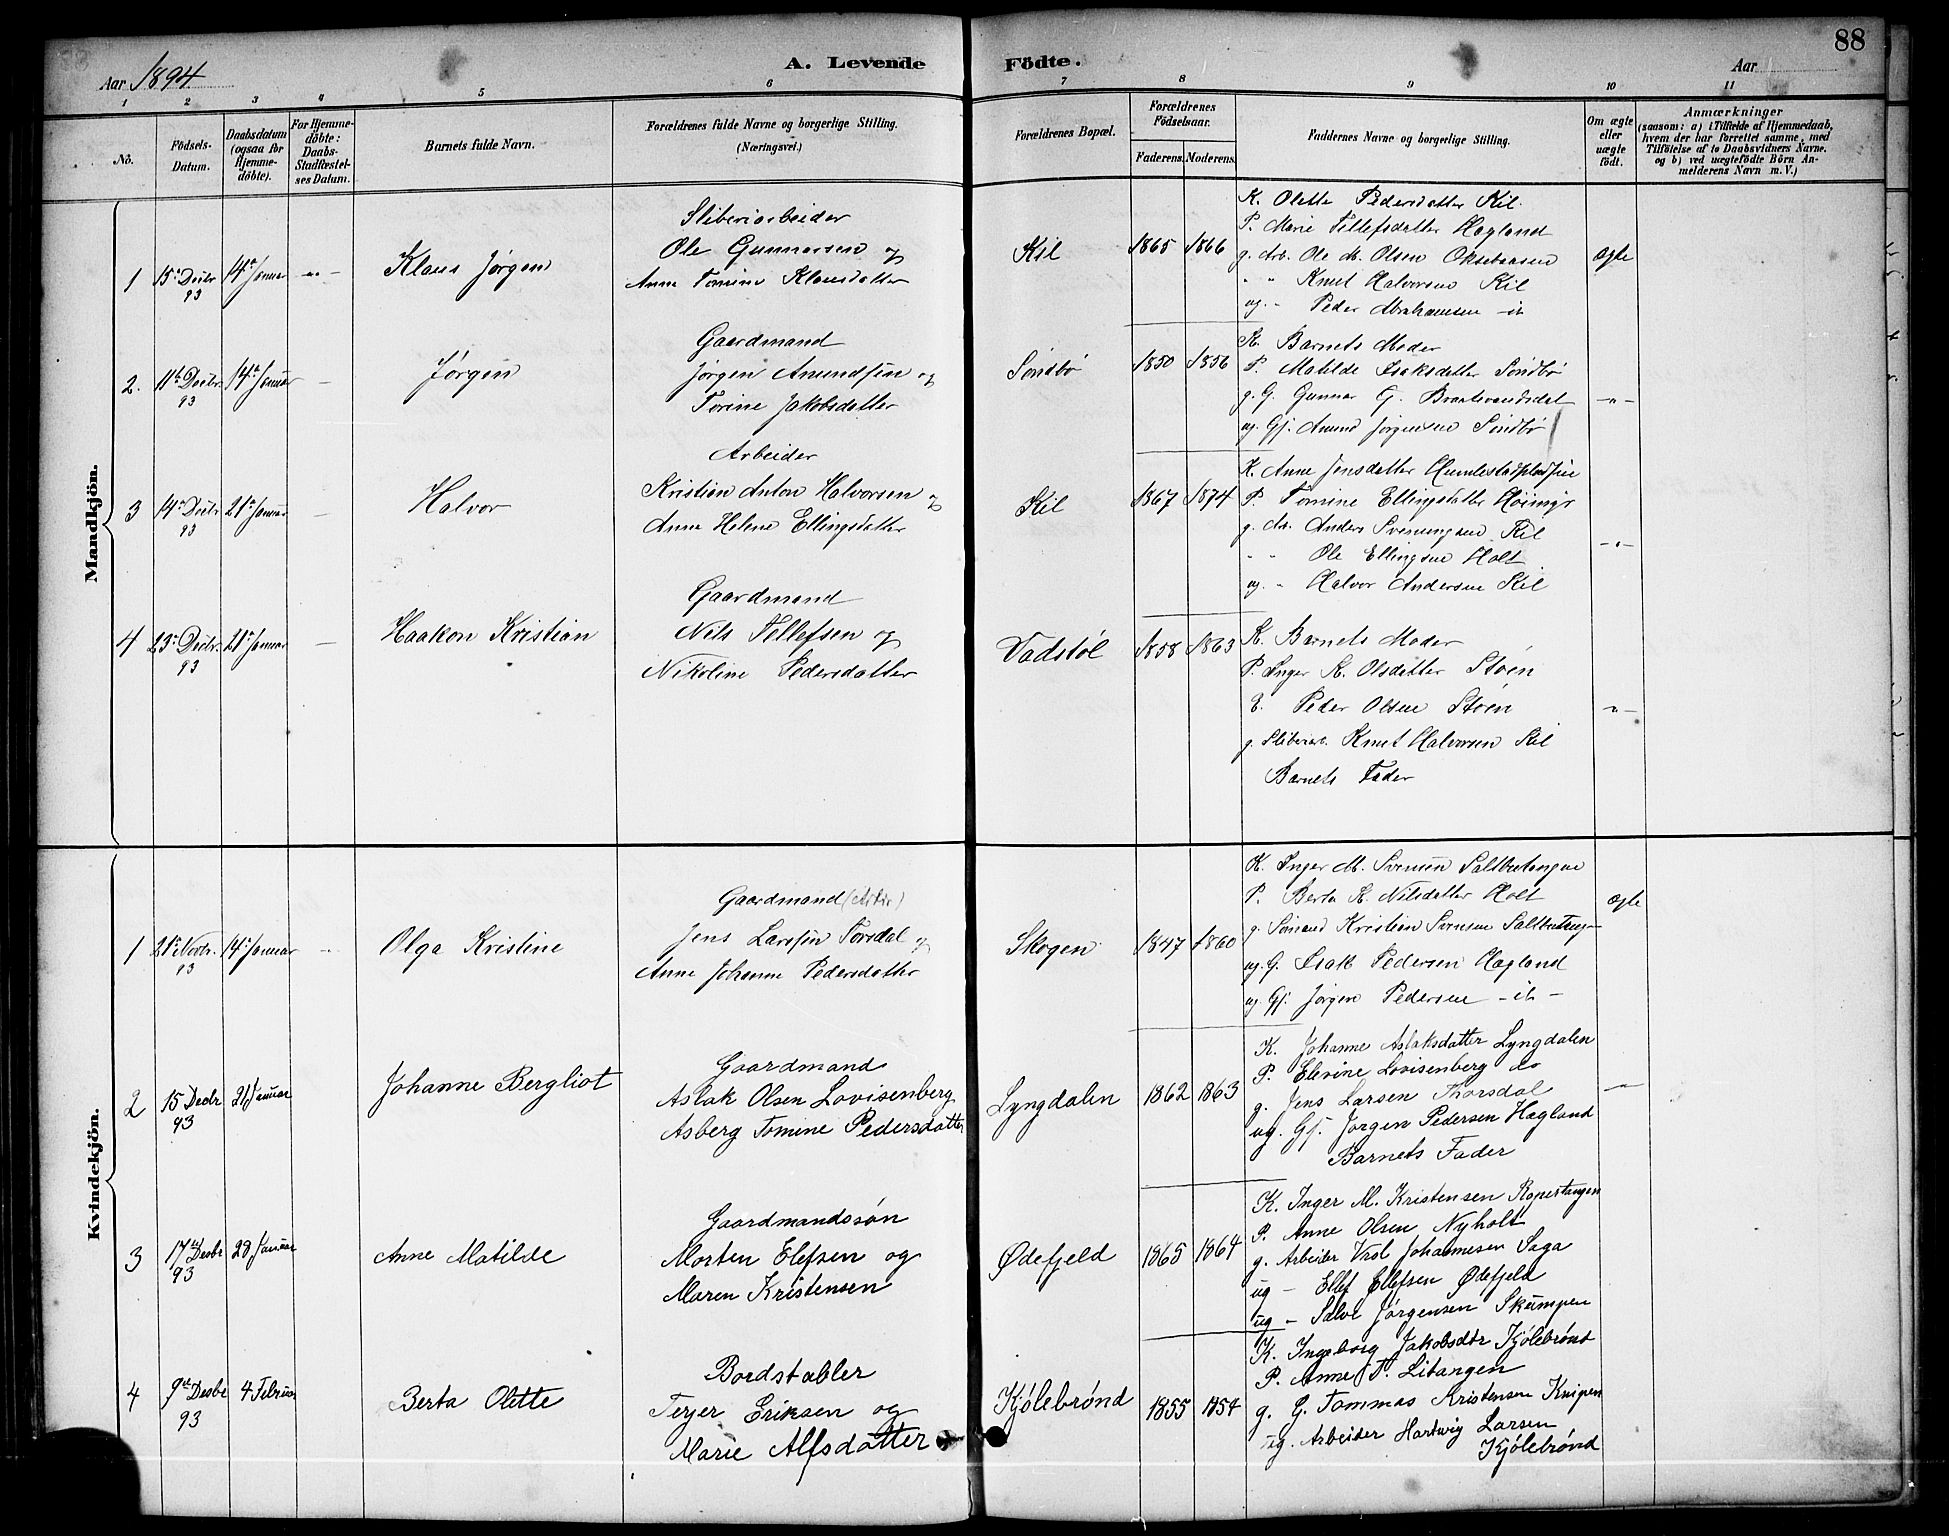 88
Aar 1894
A. Levende
Födte.
Aar
1 2 3 4 5 6 7 8 9 10 11
No.
Födsels-
Datum.
Daabsdatum
(ogsaa for
Hjemme-
döbte).
For Hjemme-
döbte:
Daabs-
Stadfæstel-
ses Datum.
Barnets fulde Navn.
Forældrenes fulde Navne og borgerlige Stilling.
(Næringsvei.)
Forældrenes Bopæl.
Forældrenes
Födselsaar.
Faderens. Moderens.
Faddernes Navne og borgerlige Stilling.
Om ægte
eller
uægte
födt.
Anmærkninger
(saasom: a) i Tilfælde af Hjemmedaab,
hvem der har forrettet samme, med
Tilföielse af to Daabsvidners Navne,
og b) ved uægtefödte Börn An-
melderens Navn m. V.)
Mandkjön.
1 15de Decbr 93 14de Januar Klaus Jørgen
Sliberiarbeider
Ole Gunnarsen og
Anne Tomine Klausdatter
Kil 1865 1866
K. Olette Pedersdatter Kil
P. Marie Tellefsdatter Hagland
g. Arb. Ole M. Olsen
" " Knut Halvorsen Kil
ug. " Peder Abrahamsen - it
ægte
2. 11te Decbr. 93 14de Januar - Jørgen
Gaardmand
Jørgen Amundsen og
Torine Jakobsdatter
Søndbø 1850 1856
K. Barnets Moder
P. Matilde Isaksdatter Søndbø
g. G. Gunnar G.
ug. Gj. Amund Jørgensen Søndbø
-"-
3 14de Decbr 93 21de Januar - Halvor
Arbeider
Kristian Anton Halvorsen og
Anne Helene Ellingsdatter
Kil 1867 1874
K. Anne Jensdatter
P. Tomine Ellingsdatter Høimyr
g. Arb. Anders Svenungsen Kil
" " Ole Ellingsen Holt
ug. " Halvor Andersen Kil
-"-
4 23de Decbr. 93 21de Januar - Haakon Kristian
Gaardmand
Nils Tellefsen og
Nikoline Pedersdatter
Vadstøl 1858 1863
K. Barnets Moder
P. Inger K. Olsdatter Støen
E. Peder Olsen Støen
g. Sliberiarb. Knut Halvorsen Kil
Barnets Fader
-"-
Kvindekjön.
1 21de Novbr. 93 14de Januar Olga Kristine
Gaardmand
Jens Larssen Torsdal og
Anne Johanne Pedersdatter
Skogen 1847 1860
K. Inger M. Svensen
P. Berta K. Nilsdatter Holt
g. Sømand Kristian Svensen
ug. G. Isak Pedersen Hagland
ug. Gj. Jørgen Pedersen - it -
ægte
2 15 Decbr 93 21 Januar Johanne Bergliot
Gaardmand
Aslak Olsen Lovisenberg
Asberg Tomine Pedersdatter
Lyngdalen 1862 1863
K. Johanne Aslaksdatter Lyngdalen
P. Elevine Lovisenberg do
g. Jens Larsen Thorsdal
ug. Gj. Jørgen Pedersen Hagland
Barnets Fader
-"-
3 17de Decbr 93 28 Januar Anne Matilde
Gaardmandssøn
Morten Elefsen og
Maren Kristensen
Ødefjeld 1865 1864
K. Inger M. Kristensen Roperstangen
P. Anne Olsen Nyholt
g. Arbeider Johannesen Saga
ug - Ellef Ellefsen Ødefjeld
ug - Salve Jørgensen Skumpen
4 9de Decbr 93 4 Februar Berta Olette
Bordstabler
Terjer Eriksen og
Marie Alfsdatter
Kjølebrønd 1855 1854
K. Ingeborg Jakobsdtr Kjølebrønd
P. Anne T. Litangen
g. G. Tommas Kristensen Knipen
ug. Arbeider Hartvig Larsen
Kjølebrønd